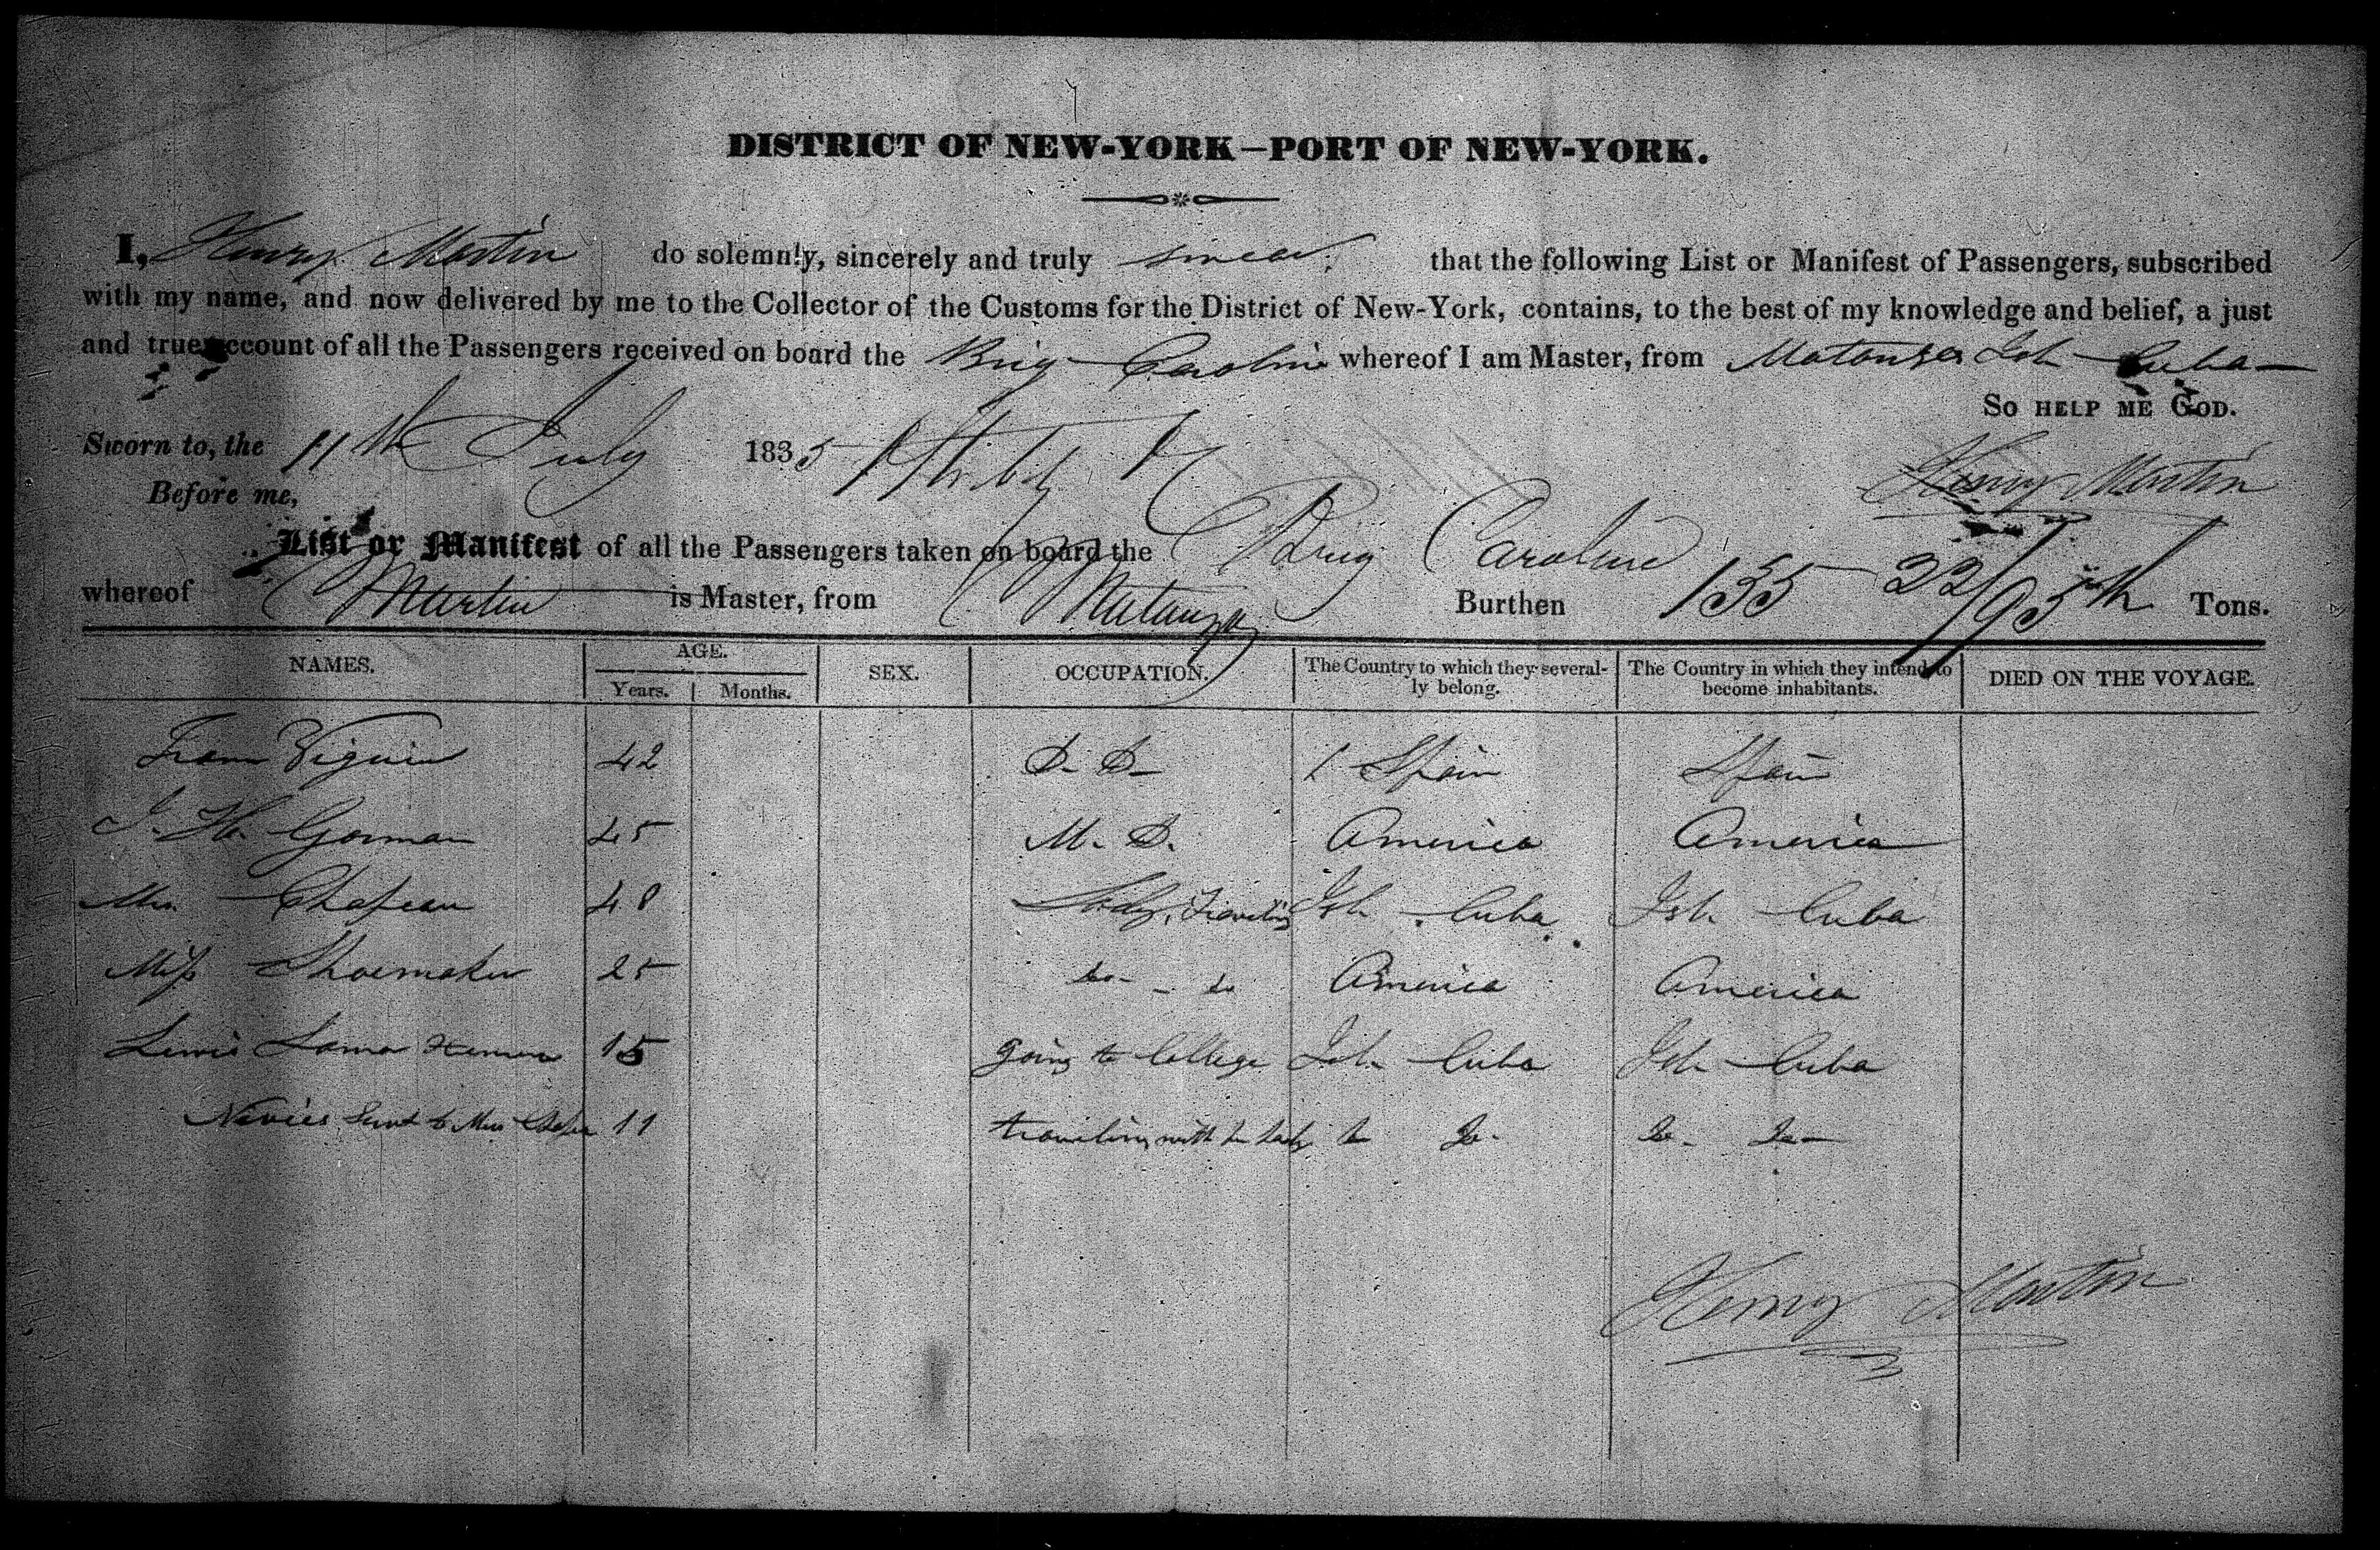 DISTRICT OF NEW-YORK—PORT OF NEW-YORK.
I, Henry Martin do solemnly, sincerely and truly swear, that the following List or Manifest of Passengers, subscribed
with my name, and now delivered by me to the Collector of the Customs for the District of New-York, contains, to the best of my knowledge and belief, a just
and true account of all the Passengers received on board the Brig Caroline whereof I am Master, from Matanzas Isl. Cuba—
So HELP ME GOD.
Sworn to, the 11th July 1835 Henry Martin
Before me,
List or Manifest of all the Passengers taken on board the Brig Caroline
whereof Martin is Master, from Matanzas Burthen 135 22/95th Tons.
NAMES. AGE. SEX. OCCUPATION. The Country to which they several- The Country in which they intend to DIED ON THE VOYAGE.
Years. Months. ly belong. become inhabitants.
42 D. D— Spain Spain
J. H. Gorman 45 M. D. America America
Mrs. Chapeau 48 Lady, Traveling Isl. Cuba Isl. Cuba
Miss Shoemaker 25 do— do America America
Lewis 15 going to College Isl. Cuba Isl. Cuba
to Mrs 11 traveling with Lady do do. do. do—
Henry Martin